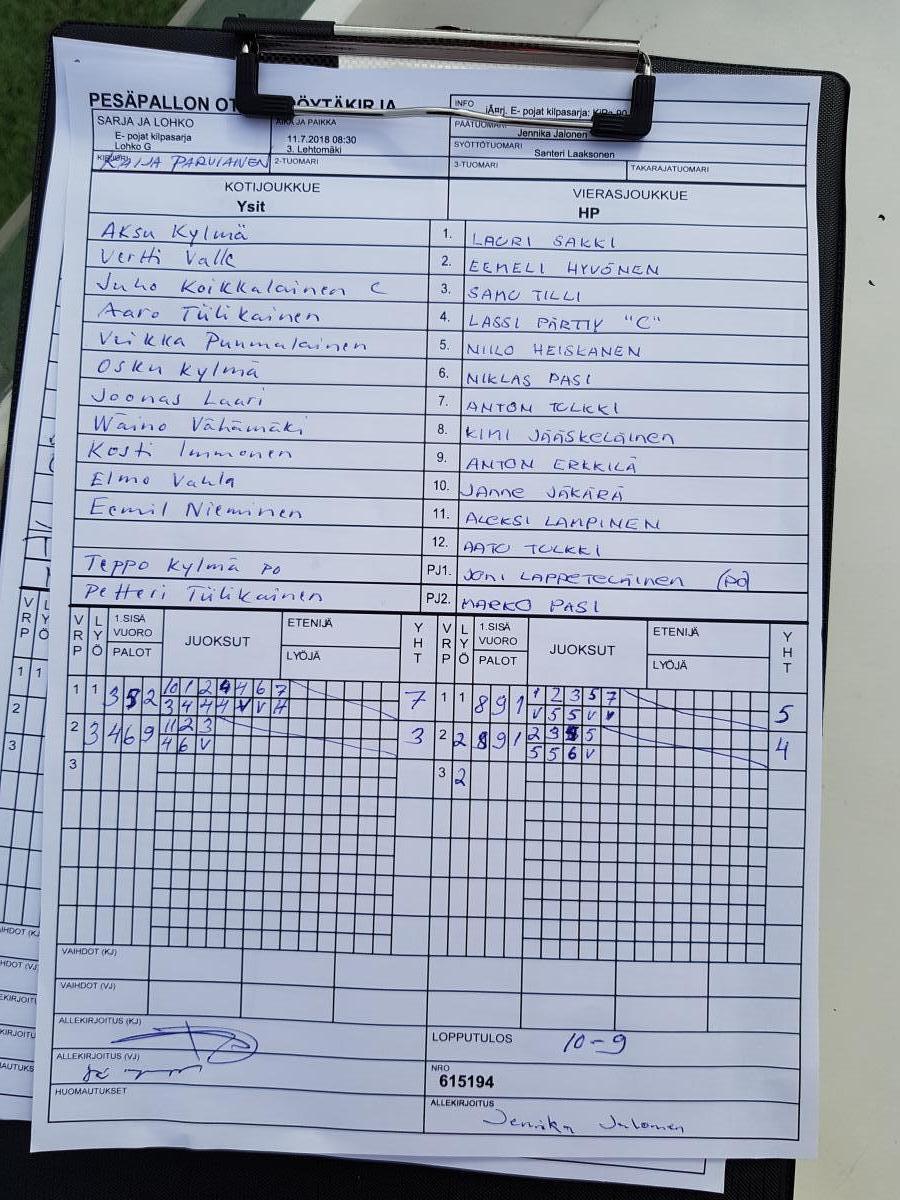 PESÄPALLON OT ÖYTÄKIRJA
INFO
E- pojat kilpasarja;
SARJA JA LOHKO
E- pojat kilpasarja
Lohko G
AIKA JA PAIKKA
11.7.2018 08:30
3. Lehtomäki
PÄÄTUOMARI
Jennika Jalonen
SYÖTTÖTUOMARI
Santeri Laaksonen
KIRJURI
KAIJA PARVIAINEN
2-TUOMARI
3-TUOMARI
TAKARAJATUOMARI
KOTIJOUKKUE
Ysit
VIERASJOUKKUE
HP
Aksu Kylmä 1. LAURI SAKKI
Vertti Valle 2. EEMELI HYVÖNEN
Juho Koikkalainen C 3. SAMU TILLI
Aaro Tiilikainen 4. LASSI PÄRTTY "C"
Veikka Puumalainen 5. NIILO HEISKANEN
Osku Kylmä 6. NIKLAS PASI
Joonas Lauri 7. ANTON TULKKI
Wäino Vähämäki 8. KIMI JÄÄSKELÄINEN
Kosti Immonen 9. ANTON ERKKILÄ
Elmo Vahla 10. JANNE JÄKÄRÄ
Eemil Nieminen 11. ALEKSI LAMPINEN
12. AATU TULKKI
Teppo Kylmä PO PJ1. JONI LAPPETELÄINEN (PO)
Petteri Tiilikainen PJ2. MARKO PASI
VRP LYÖ 1.SISÄ VUORO PALOT JUOKSUT ETENIJÄ LYÖJÄ YHT VRP LYÖ 1.SISÄ VUORO PALOT JUOKSUT ETENIJÄ LYÖJÄ YHT
1 1 3 5 2 10 1 2 4 4 6 7 7 1 1 8 9 1 1 2 3 5 7 5
3 4 4 4 V V H V 5 5 V V
2 3 4 6 9 11 2 3 3 2 2 8 9 1 2 3 5 5 4
4 6 V 5 5 6 V
3 3 2
VAIHDOT (KJ)
VAIHDOT (VJ)
ALLEKIRJOITUS (KJ)
LOPPUTULOS 10-9
ALLEKIRJOITUS (VJ)
NRO
615194
HUOMAUTUKSET
ALLEKIRJOITUS
Jennika Jalonen